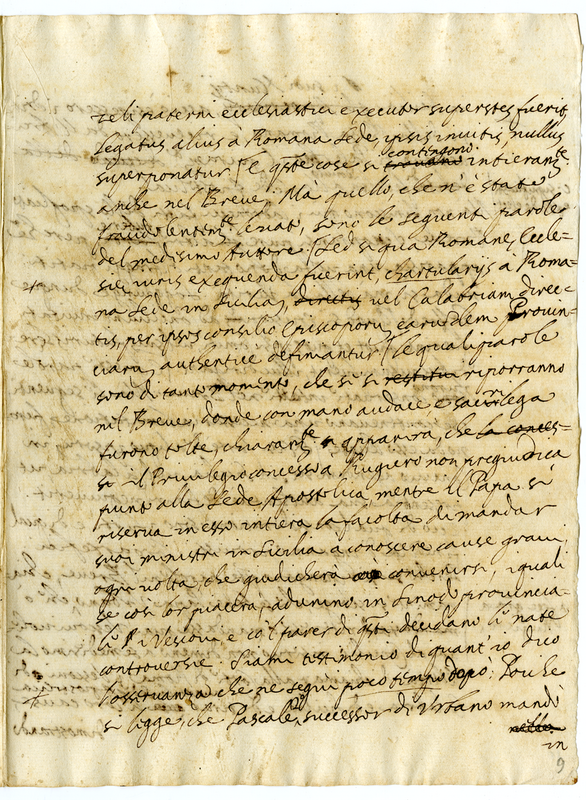 zeli paterni ecclesiastici executor superstes fuerit,
legatus alius à Romana Sede, ipsis invitis, nullus
superponatur [e q.ste cose si trovano contengono intieram.te
anche nel Breve. Mà quello, che n'è stato
fraudolentem.te levato, sono le seguenti parole
del medesimo Autore [Sed si qua Romanę, Eccle=
siei, iuris exequenda fuerint, chartularijs à Roma=
na Sede in Sicilia, directis vel Calabriam, direc=
tis, per ipsos consilio Episcoporu, earudem Provin=
ciaru, authenticè definiantur] le quali parole
sono di tanto momento, che se si restitui riporranno
nel Breve, donde con mano audace, e sacrilega
furono tolte, chiaram.te apparirà, che la conces=
si il Privilegio concesso à Rugiero non pregiudica
punto alla Sede Apostolica, mentre il Papa si
riserva in esso intiera la facoltà di mandar
suoi ministri in Sicilia a conoscere cause gravi,
ogni volta, che giudicherà convenirsi, i quali
se così lor piacerà, adunino in Sinodo provincia=
li i Vescovi, e col parer di q.sti decidano le nate
controversie. Siami testimonio di quant'io dico
l'osservanza che ne seguì poco tempo dopò: Poiche
si legge, che Pascale, successor di Urbano mandò
in
9